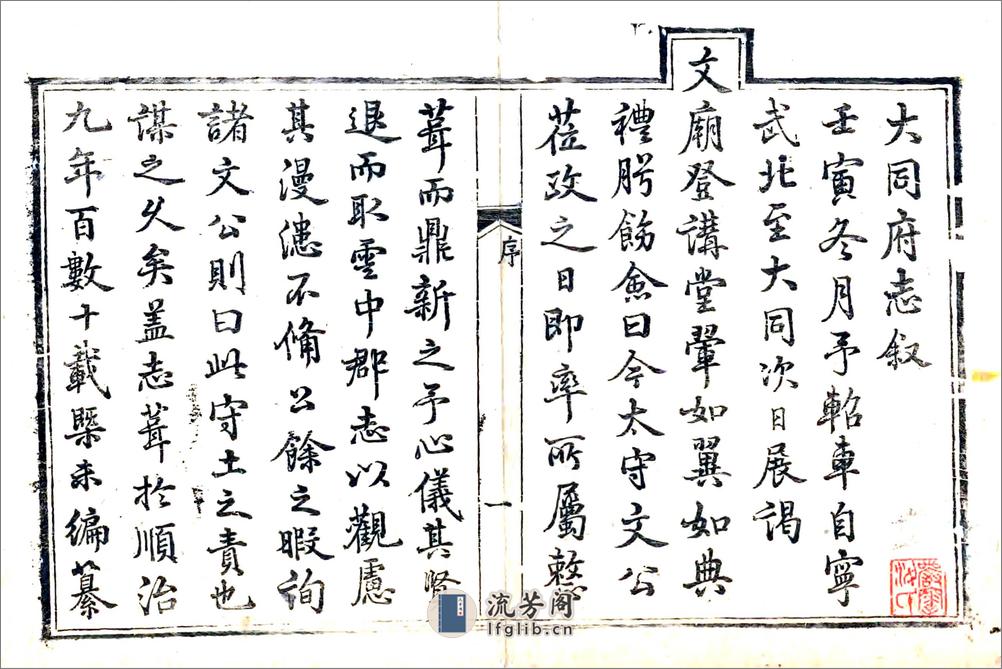 大同府志叙
壬寅冬月予軺車自寧
武北至大同次日展謁
文
廟登講堂翬如翼如典
禮腭飭僉曰今太守文公
莅政之日即率所屬
葺而鼎新之予心儀其賢
退而取雲中郡志以觀慮
其漫漶不脩公餘之暇詢
諸文公則曰此守土之責也
謀之久矣盖志葺於順治
九年百數十載槩未編纂
序
一
流芳阁
lfglib.cn